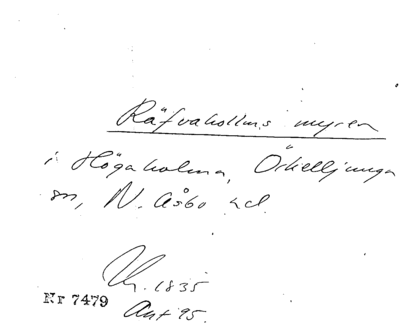 Räfvaholms myren
i Högaholma, Örkelljunga
sn, N. Åsbo hd.
Kr. 1835
Nr 7479
Ant 95.